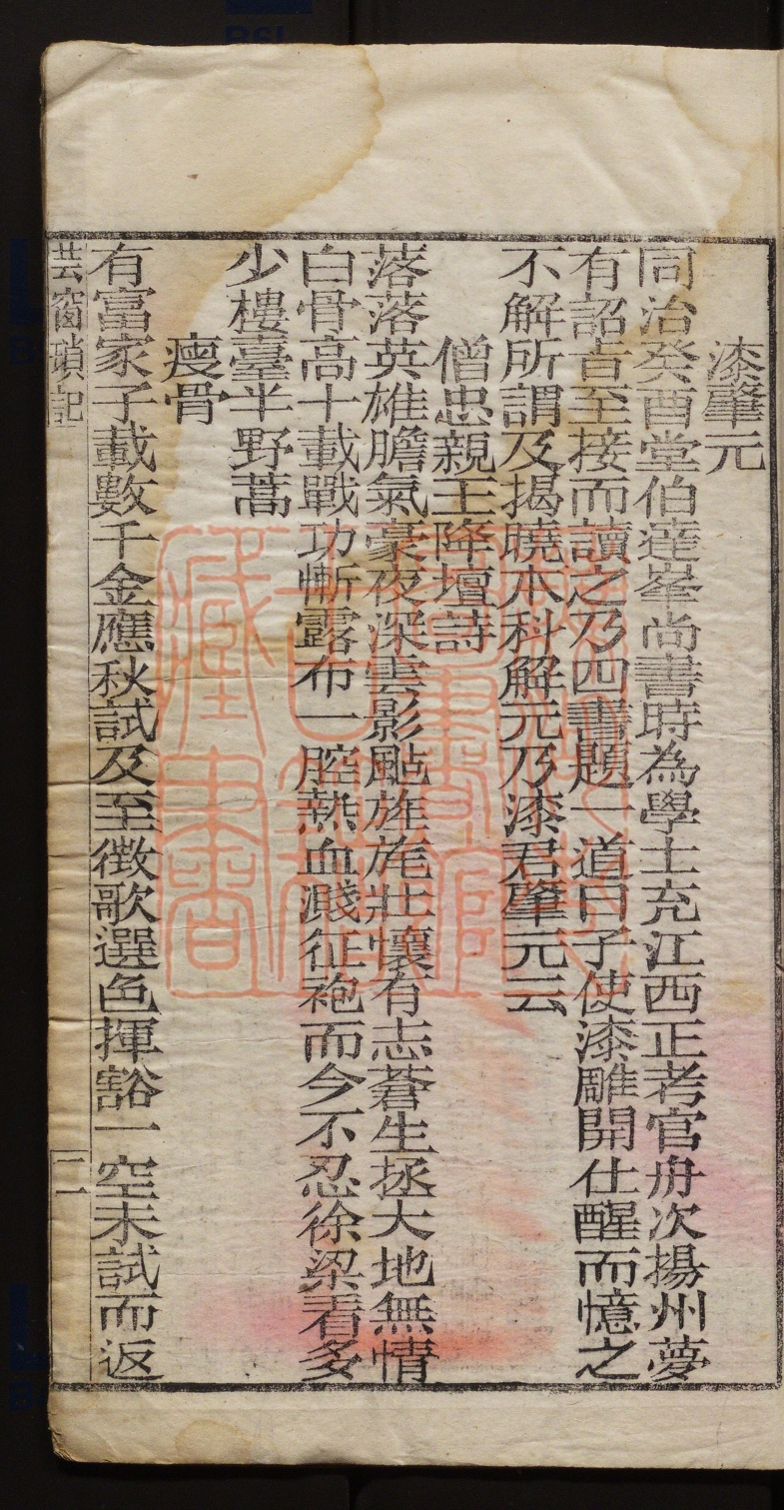 漆肇元
同治癸酉堂伯達峯尚書時為學士充江西正考官舟次揚州夢
有詔旨至接而讀之乃四書題一道曰子使漆雕開仕醒而憶之
不解所謂及揭曉本科解元乃漆君肇元云
僧忠親王降壇詩
落落英雄膽氣豪夜深雲影颭旌旄壯懷有志蒼生拯大地無情
白骨高十載戰功慚露布一腔熱血濺征袍而今不忍徐梁看多
少樓臺半野蒿
瘦骨
有富家子載數千金應秋試及至徵歌選色揮豁一空未試而返
芸窗瑣記
二